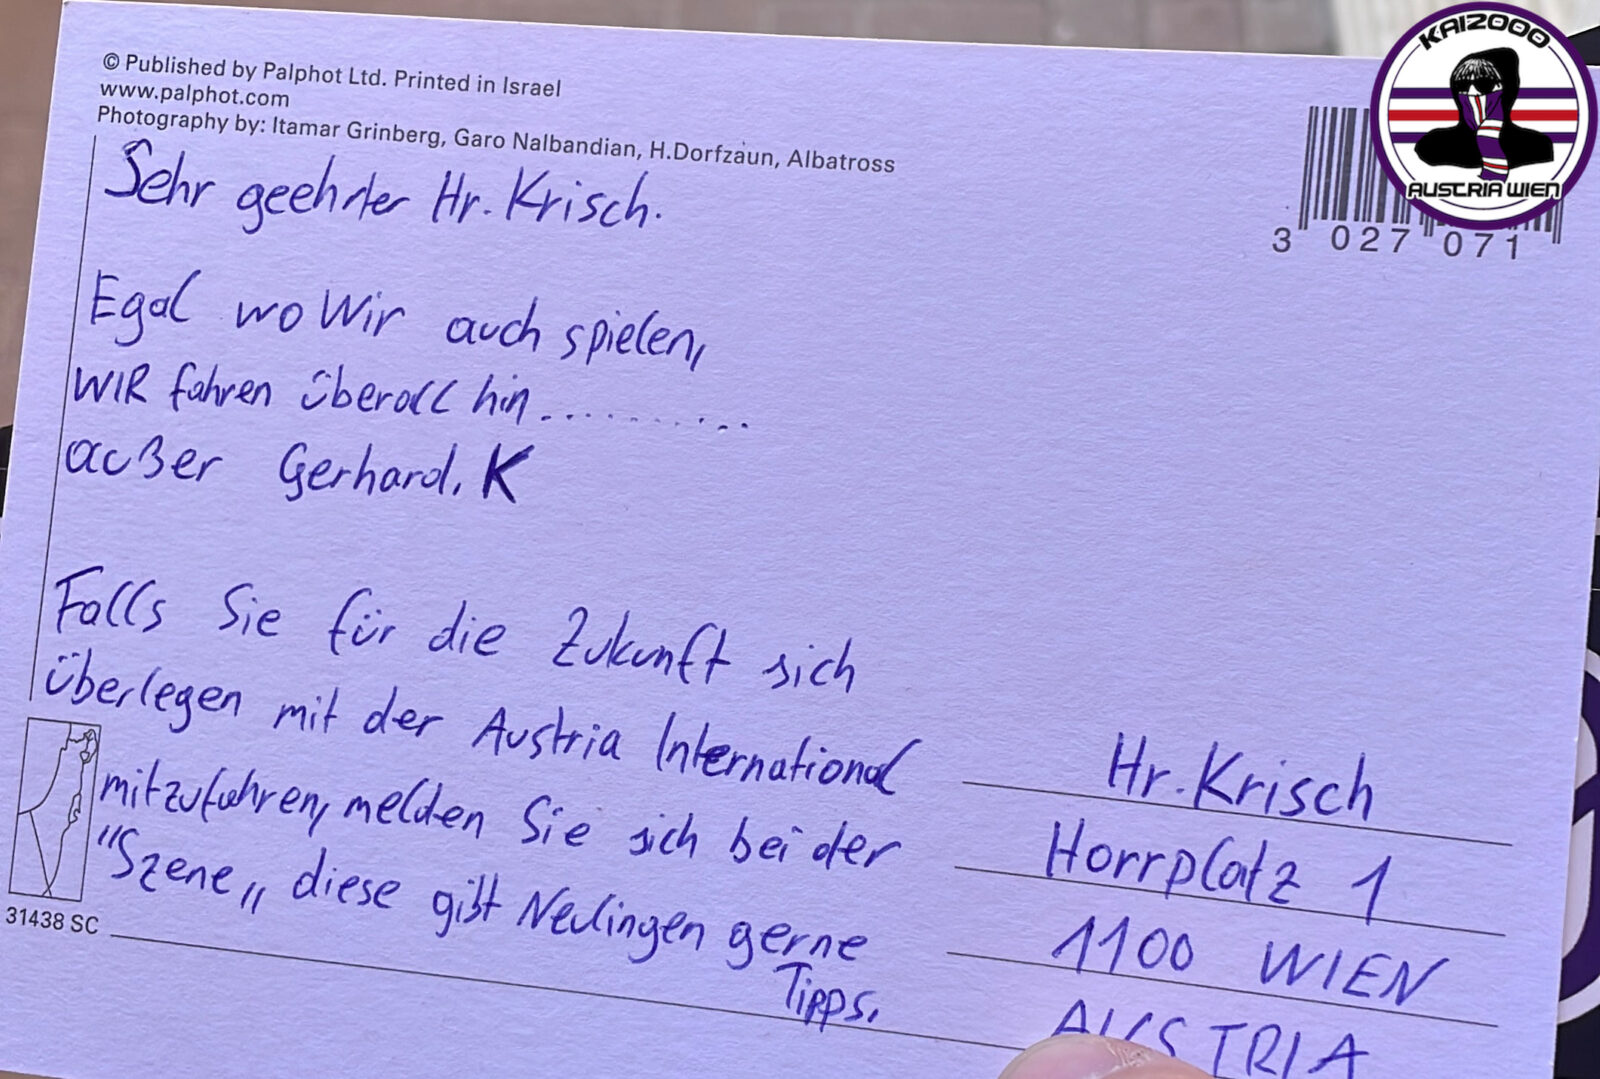 © Published by Palphot Ltd. Printed in Israel
www.palphot.com
Photography by: Itamar Grinberg, Garo Nalbandian, H.Dorfzaun, Albatross
Sehr geehrter Hr. Krisch.
Egal wo Wir auch spielen,
WIR fahren überall hin...........
außer Gerhard. K
Falls Sie für die Zukunft sich
überlegen mit der Austria International
mitzufahren, melden Sie sich bei der
"Szene„ diese gibt Neulingen gerne
Tipps.
31438 SC
Hr. Krisch
Horrplatz 1
1100 WIEN
AUSTRIA
3 027 071
KAI2000
AUSTRIA WIEN